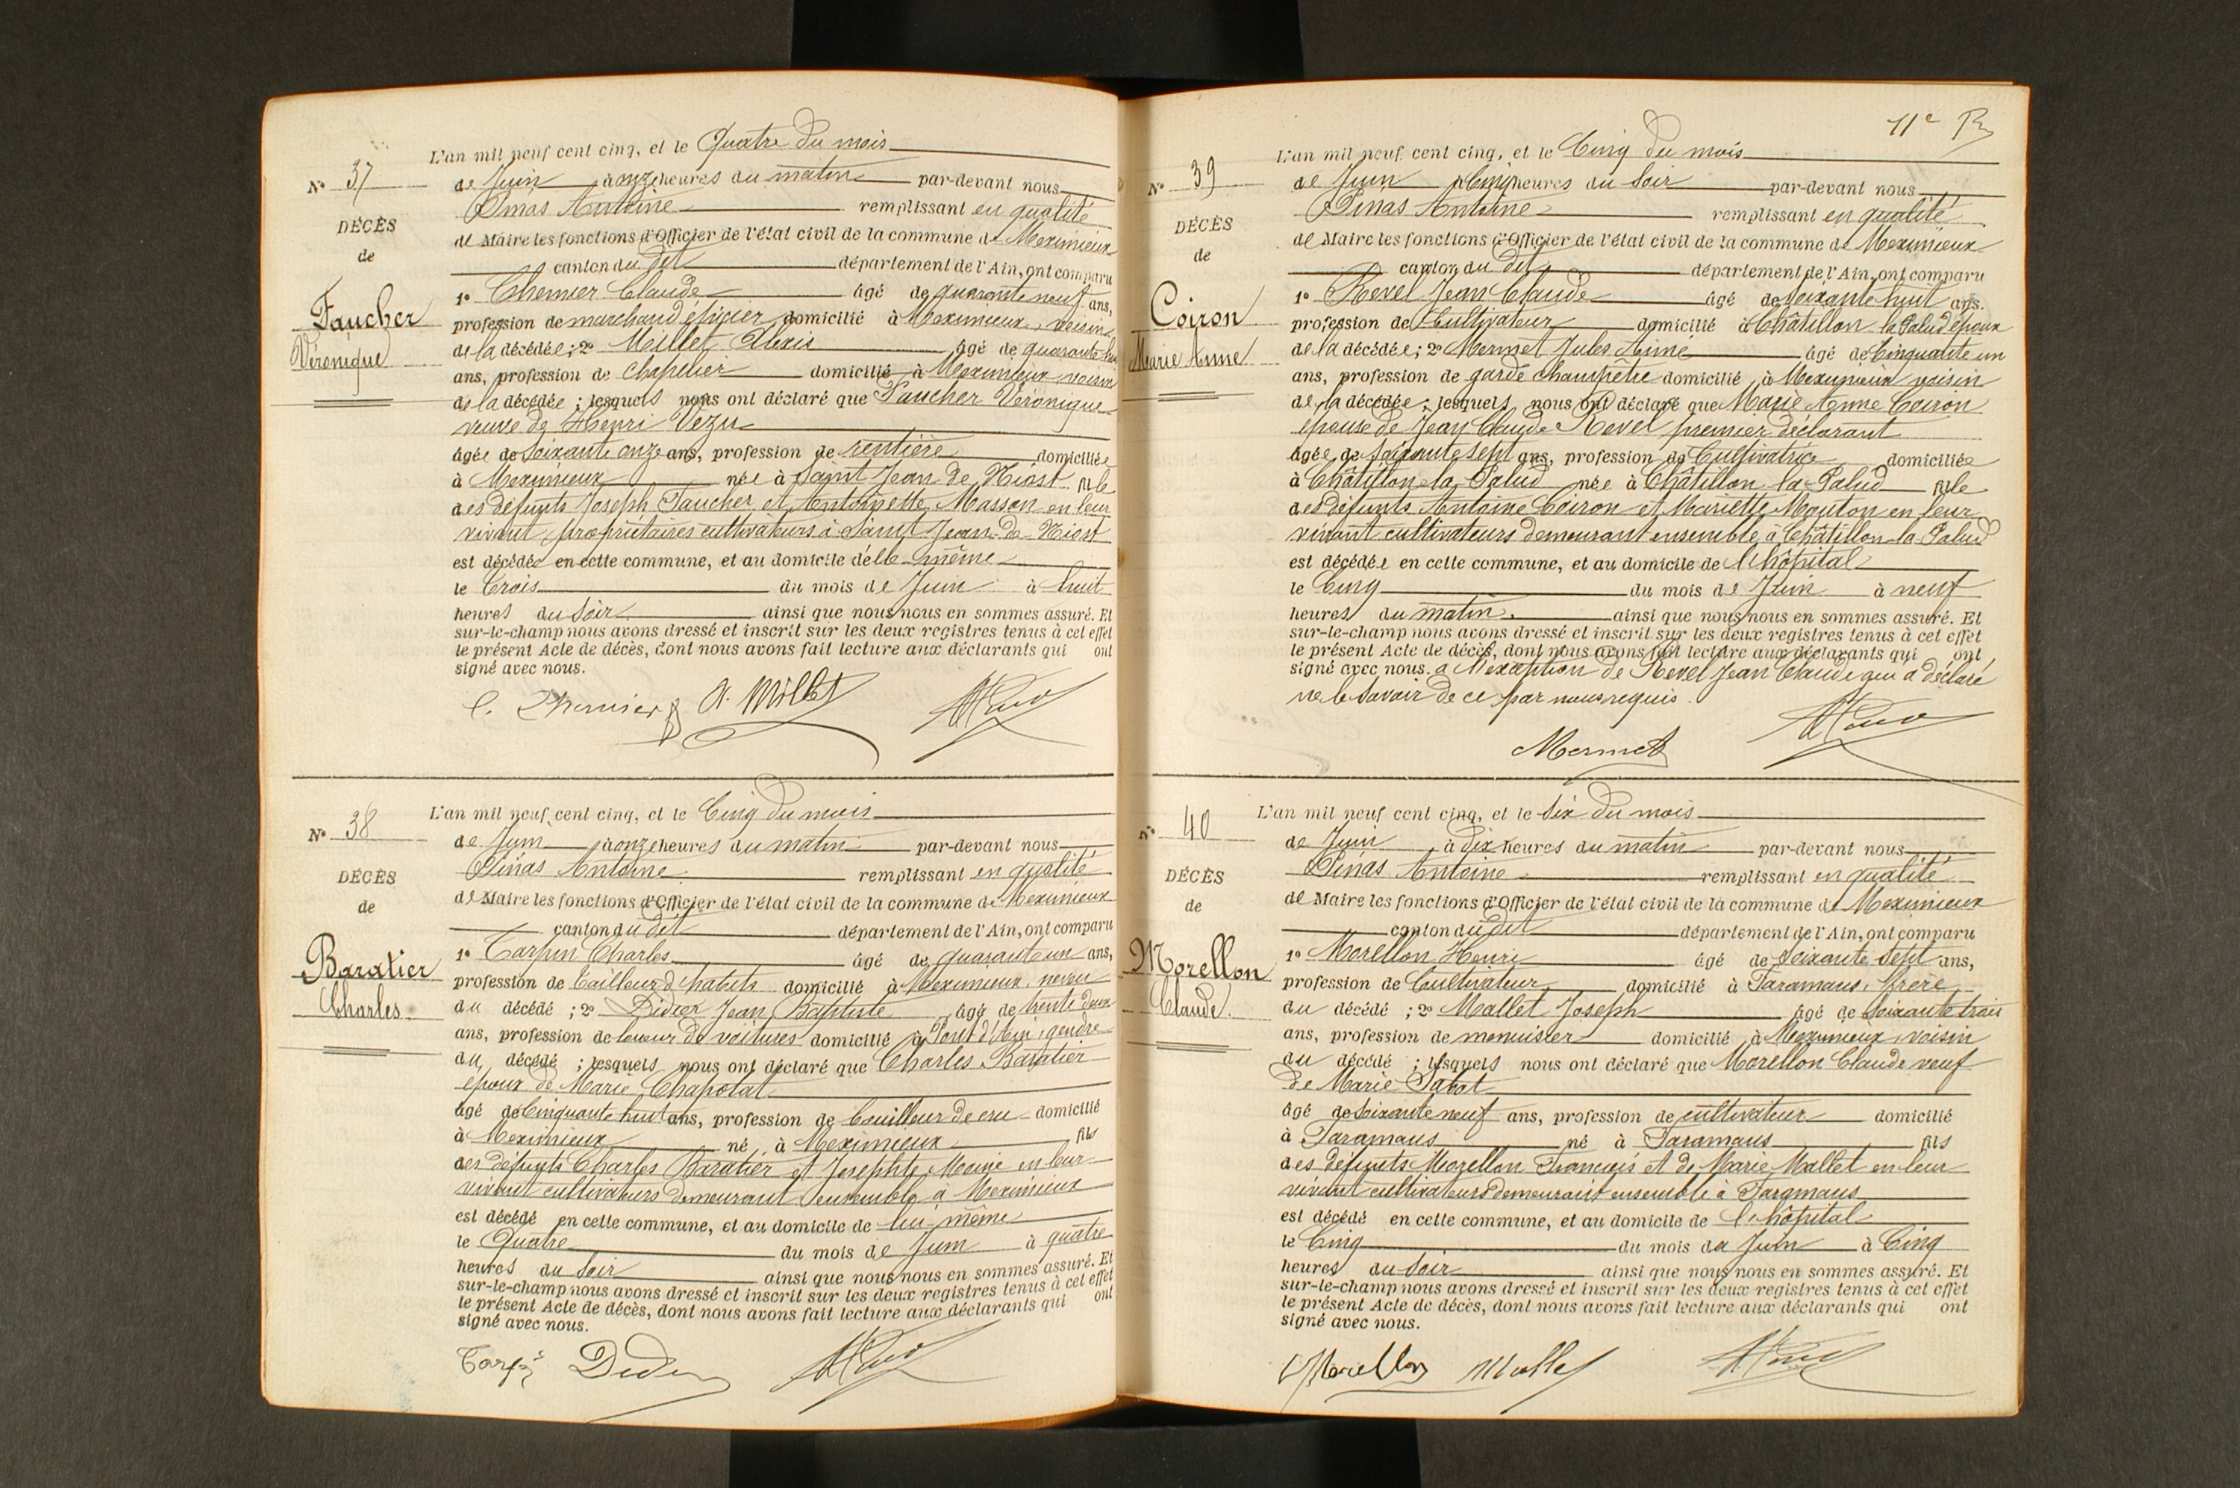 N° 37
DÉCÈS
de
Faucher
Véronique
L'an mil neuf cent cinq, et le Quatre du mois
de Juin à onze heures du matin par-devant nous
Pinas Antoine remplissant en qualité
de Maire les fonctions d'Officier de l'état civil de la commune de Meximieux
canton du dit département de l'Ain, ont comparu
1° Chenier Claude âgé de quarante neuf ans,
profession de marchand épicier domicilié à Meximieux, voisin
de la décédée ; 2° Millet Alexis âgé de quarante
ans, profession de chapelier domicilié à Meximieux voisin
de la décédée ; lesquels nous ont déclaré que Faucher Véronique
veuve de Henri Vezu
âgée de Soixante onze ans, profession de rentière domiciliée
à Meximieux née à Saint Jean de Niost fille
des défunts Joseph Faucher et Antoinette Masson en leur
vivant propriétaires cultivateurs à Saint Jean de Niost
est décédée en cette commune, et au domicile d'elle-même
le Trois du mois de Juin à huit
heures du Soir ainsi que nous nous en sommes assuré. Et
sur-le-champ nous avons dressé et inscrit sur les deux registres tenus à cet effet
le présent Acte de décès, dont nous avons fait lecture aux déclarants qui ont
signé avec nous.
A. Millet
N° 38
DÉCÈS
de
Baratier
Charles
L'an mil neuf cent cinq, et le Cinq du mois
de Juin à onze heures du matin par-devant nous
Pinas Antoine remplissant en qualité
de Maire les fonctions d'Officier de l'état civil de la commune de Meximieux
canton du dit département de l'Ain, ont comparu
1° Carpin Charles âgé de quarante un ans,
profession de tailleur d'habits domicilié à Meximieux, neveu
du décédé ; 2° Didier Jean Baptiste âgé de trente deux
ans, profession de loueur de voitures domicilié à Pont d'Ain, gendre
du décédé ; lesquels nous ont déclaré que Charles Baratier
époux de Marie Chapolat
âgé de Cinquante huit ans, profession de bouilleur de cru domicilié
à Meximieux né à Meximieux fils
des défunts Charles Baratier et Josephte Moine en leur
vivant cultivateurs demeurant ensemble à Meximieux
est décédé en cette commune, et au domicile de lui-même
le Quatre du mois de Juin à quatre
heures du Soir ainsi que nous nous en sommes assuré. Et
sur-le-champ nous avons dressé et inscrit sur les deux registres tenus à cet effet
le présent Acte de décès, dont nous avons fait lecture aux déclarants qui ont
signé avec nous.
11e
N° 39
DÉCÈS
de
Coiron
Marie Anne
L'an mil neuf cent cinq, et le Cinq du mois
de Juin à Cinq heures du Soir par-devant nous
Pinas Antoine remplissant en qualité
de Maire les fonctions d'Officier de l'état civil de la commune de Meximieux
canton du dit département de l'Ain, ont comparu
1° Revel Jean Claude âgé de Soixante huit ans.
profession de Cultivateur domicilié à Châtillon la Palud époux
de la décédée ; 2° Mermet Jules Aimé âgé de Cinquante un
ans, profession de garde champêtre domicilié à Meximieux voisin
de la décédée ; lesquels nous ont déclaré que Marie Anne Coiron
épouse de Jean Claude Revel premier déclarant
âgée de soixante sept ans, profession de Cultivatrice domiciliée
à Châtillon la Palud née à Châtillon la Palud fille
des défunts Antoine Coiron et Mariette Mouton en leur
vivant cultivateurs demeurant ensemble à Châtillon la Palud
est décédée en cette commune, et au domicile de l'hôpital
le Cinq du mois de Juin à neuf
heures du matin. ainsi que nous nous en sommes assuré. Et
sur-le-champ nous avons dressé et inscrit sur les deux registres tenus à cet effet
le présent Acte de décès, dont nous avons fait lecture aux déclarants qui ont
signé avec nous. à l'exception de Revel Jean Claude qui a déclaré
ne le savoir de ce par nous requis.
Mermet
N° 40
DÉCÈS
de
Morellon
Claude
L'an mil neuf cent cinq, et le Six du mois
de Juin à dix heures du matin par-devant nous
Pinas Antoine remplissant en qualité
de Maire les fonctions d'Officier de l'état civil de la commune de Meximieux
canton du dit département de l'Ain, ont comparu
1° Morellon Henri âgé de Soixante Sept ans,
profession de Cultivateur domicilié à Faramans, frère
du décédé ; 2° Mallet Joseph âgé de Soixante trois
ans, profession de menuisier domicilié à Meximieux, voisin
du décédé ; lesquels nous ont déclaré que Morellon Claude veuf
de Marie Sabot
âgé de Soixante neuf ans, profession de cultivateur domicilié
à Faramans né à Faramans fils
des défunts Morellon François et de Marie Mallet en leur
vivant cultivateurs demeurant ensemble à Faramans
est décédé en cette commune, et au domicile de l'hôpital
le Cinq du mois de Juin à Cinq
heures du Soir ainsi que nous nous en sommes assuré. Et
sur-le-champ nous avons dressé et inscrit sur les deux registres tenus à cet effet
le présent Acte de décès, dont nous avons fait lecture aux déclarants qui ont
signé avec nous.
Morellon